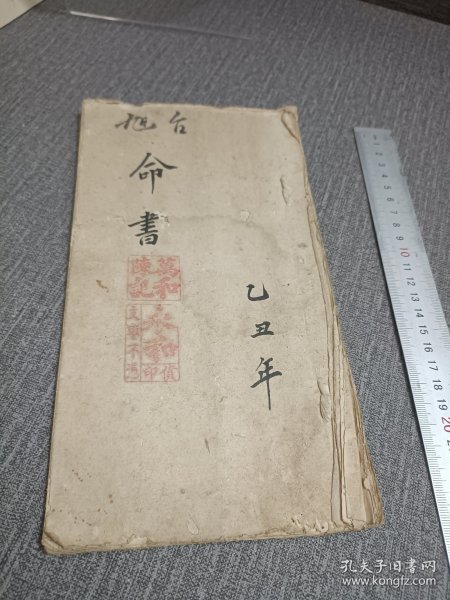 台旭
命書
乙丑年
萬和
陳記
永和
印
1 2 3 4 5 6 7 8 9 10 11 12 13 14 15 16 17 18 19 20
孔夫子旧书网
www.kongfz.com